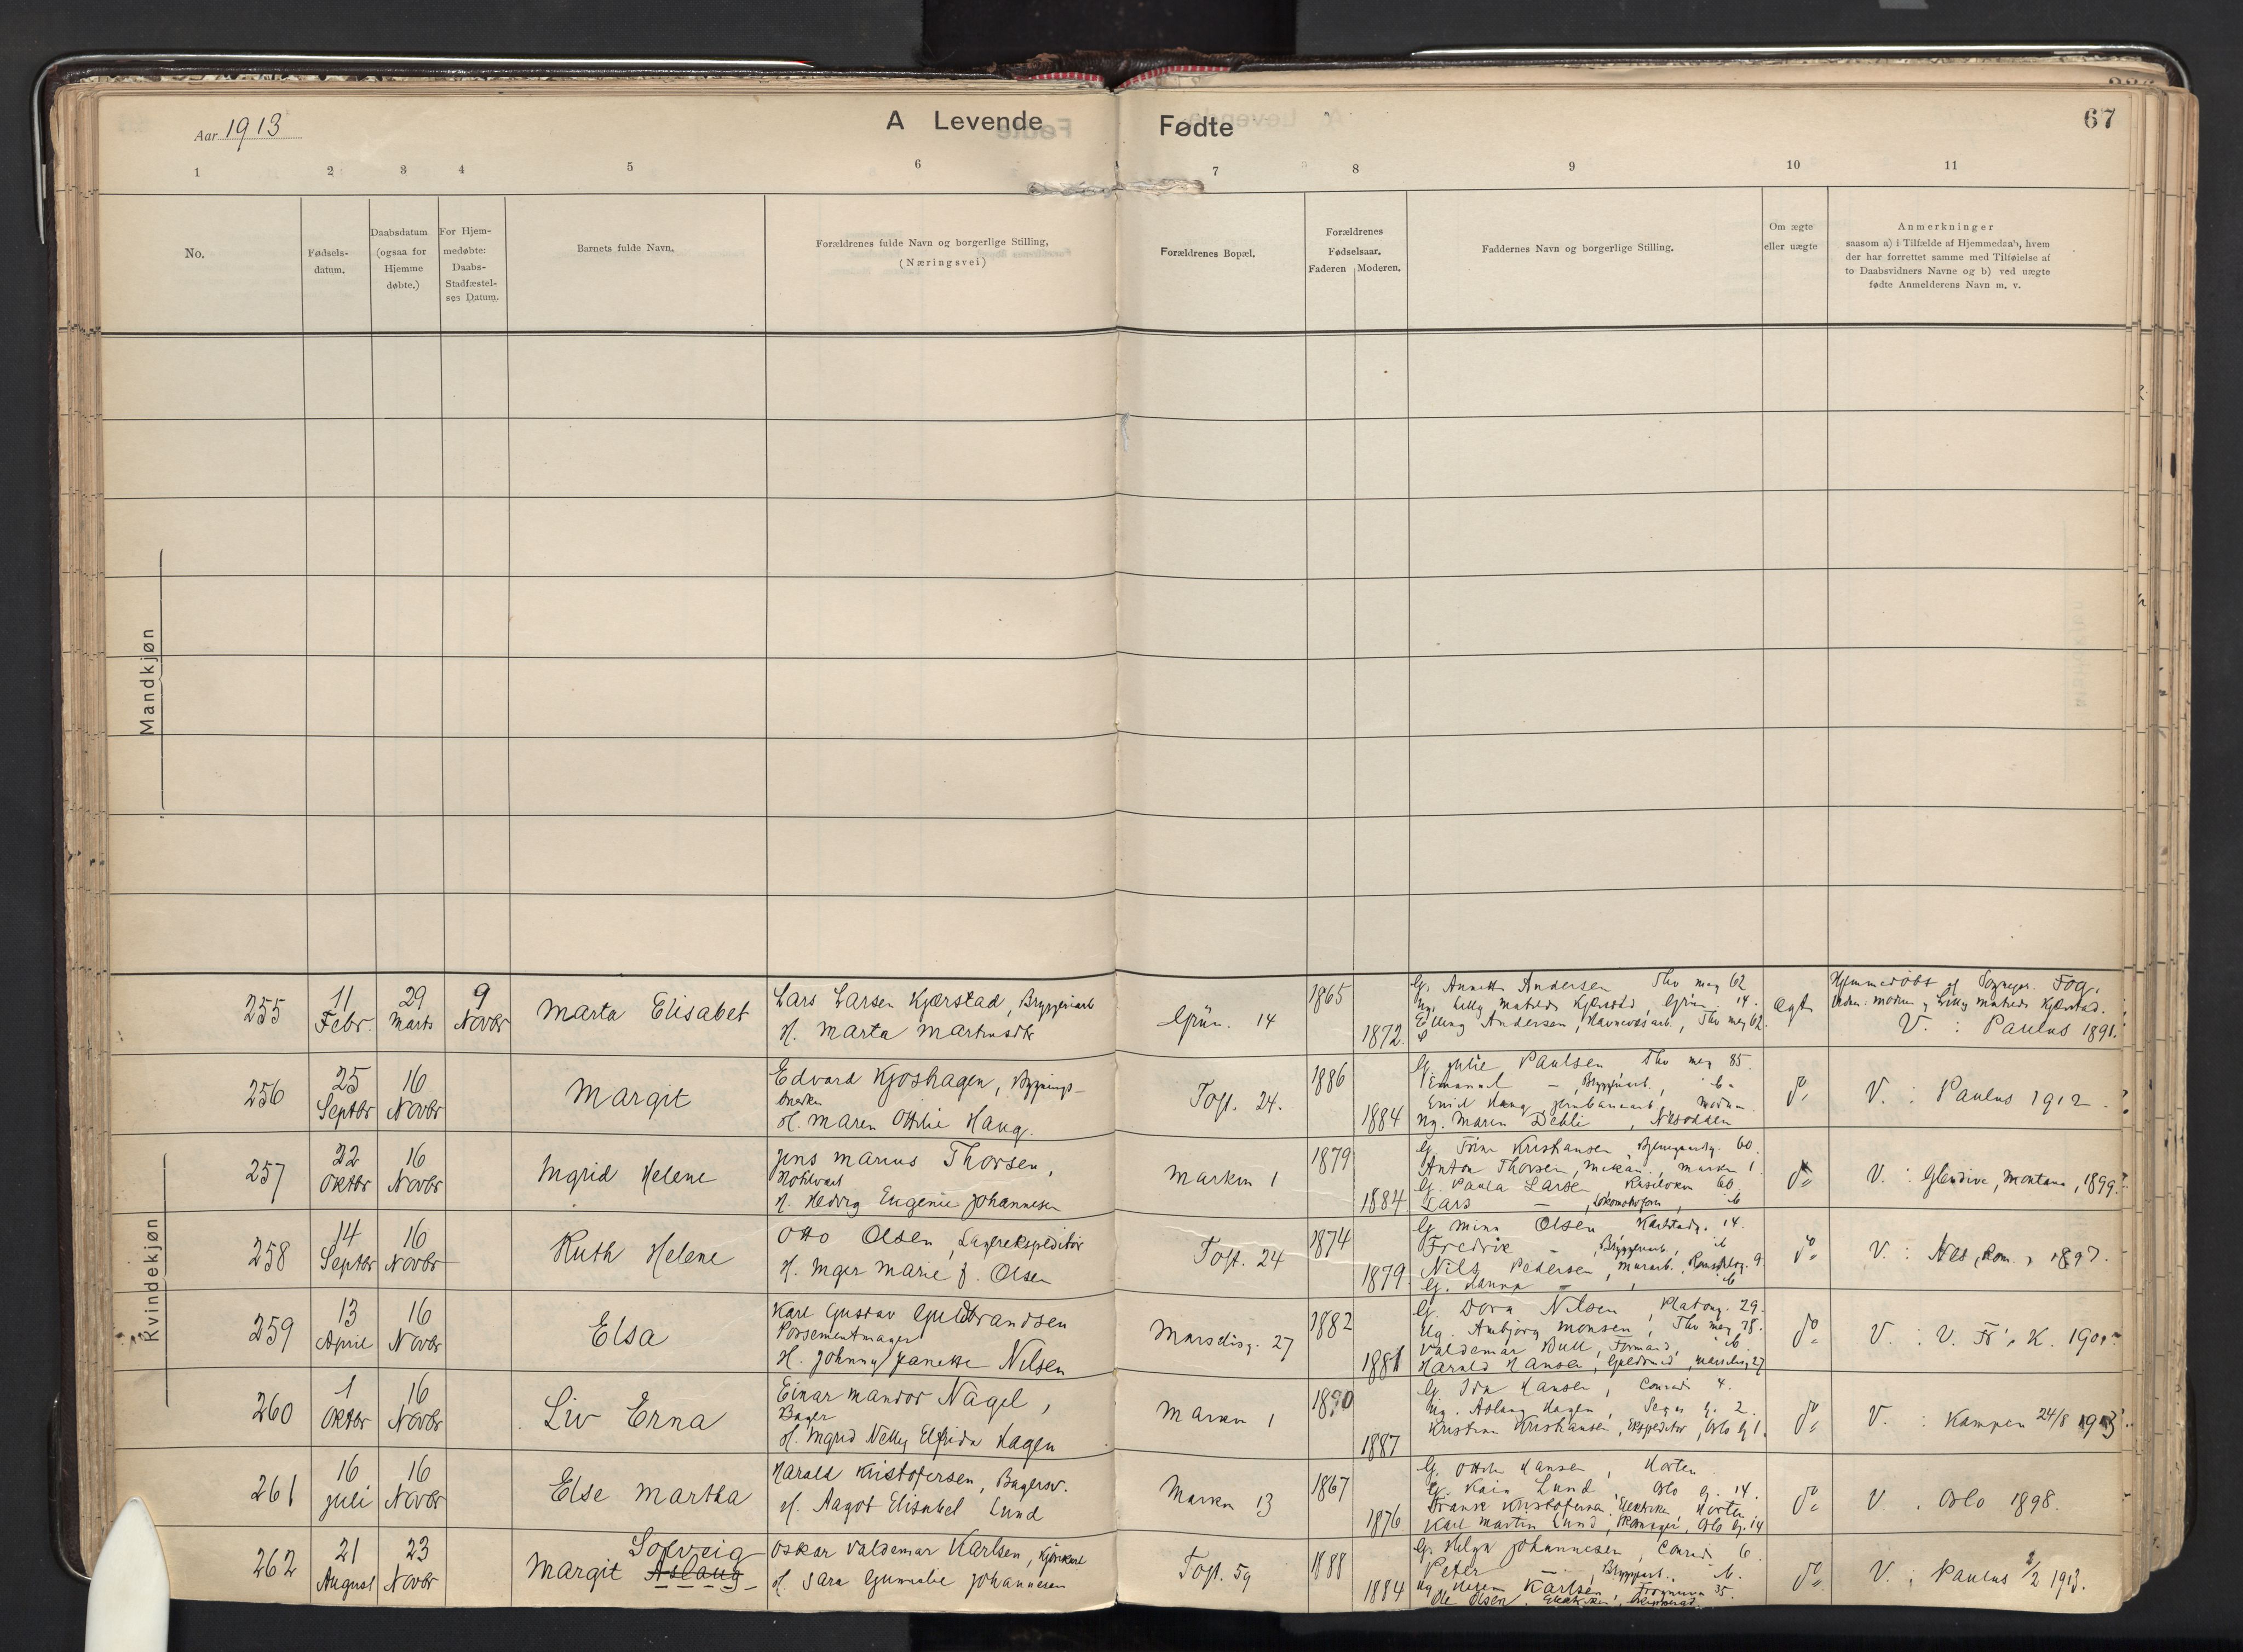 Aar 1913
A Levende Fødte
67
1 2 3 4 5 6 7 8 9 10 11
No.
Fødsels-
datum.
Daabsdatum
(ogsaa for
Hjemme
døbte.)
For Hjem-
medøbte:
Daabs-
Stadfæstel-
ses Datum.
Barnets fulde Navn.
Forældrenes fulde Navn og borgerlige Stilling,
(Næringsvei)
Forældrenes Bopæl.
Forældrenes
Fødselsaar.
Faderen Moderen.
Faddernes Navn og borgerlige Stilling.
Om ægte
eller uægte
Anmerkninger
saasom a) i Tilfælde af Hjemmedaab, hvem
der har forrettet samme med Tilføielse af
to Daabsvidners Navne og b) ved uægte
fødte Anmelderens Navn m. v.
Mandkjøn
Kvindekjøn
255
11
Febr.
29
Marts
9
Novbr
Marta Elisabet
Lars Larsen Kjærstad, Bryggeriarb
H. Marta Martinsdtr
Grün. 14
1865
1872
G. Annette Andersen Thv mey 62
Ug. Lilly Matilde Kjærstad, Grün. 14.
Elling Andersen, Havnevæsarb., Thv mey 62.
Ægt
Hjemmedøbt af Sognepr. Fog.
V. : Paulus 1891.
256
25
Septbr
16
Novbr
Margit
Edvard Kjoshagen, Bygnings-
snedker
H. Maren Ottilie Haug.
Toft. 24.
1886
1884
G. Julie Paulsen Thv mey 85.
Emanuel — , Bryggeriarb., ib.
Ug. Maren Dehli , Nesodden
do
V. : Paulus 1912.
257
22
Oktbr
16
Novbr
Ingrid Helene
Jens Marius Thorsen,
H. Hedvig Eugenie Johannesen
Marken 1
1879
1884
Anton Thorsen, Mekan., Marken 1.
G. Paula Larsen
Lars — , Lokomotivfører, ib
do
V. : Glendive, Montana, 1899.
258
14
Septbr
16
Novbr
Ruth Helene
Otto Olsen, Lagerekspeditør
H. Inger Marie f. Olsen
Toft. 24
1874
1879
G. Mina Olsen Karlstadg. 14.
Fredrik — , Bryggeriarb., ib
Nils Pedersen, Murarb.
G. Hanna — , ib
do
V. : Nes, Rom., 1897.
259
13
April
16
Novbr
Elsa
Karl Gustav Guldbrandsen
Possementmager
H. Johnny Janette Nilsen
Marsdisg. 27
1882
1881
G. Dora Nilsen, Platoug. 29.
Ug. Ambjørg Monsen, Thv mey 78.
Valdemar Bull, Formand, ib.
Harald Hansen, Guldsmed, Marsdisg 27
do
V. : V. Fr. K.
260
1
Oktbr
16
Novbr
Liv Erna
Einar Mandor Nagel,
Bager
H. Ingrid Nelly Elfrida Hagen
Marken 1
1890
1887
G. Ida Hansen, Conradi 4.
Ug. Aslaug Hagen,
Kristian Kristiansen, Ekspeditør, Oslo g 1.
do
V. : Kampen 24/8 1913
261
16
Juli
16
Novbr
Else Martha
Harald Kristofersen, Bagersv.
H. Aagot Elisabet Lund
Marken 13
1867
1876
G. Otilie Hansen, Horten
G. Kaia Lund, Oslo g. 14.
Frank Kristofersen, Elektriker, Horten
Karl Martin Lund, Oslo g. 14
do
V. : Oslo 1898.
262
21
August
23
Novbr
Solveig
Margit Aslaug
Oskar Valdemar Karlsen, Kjørekarl
H. Sara Gunvalie Johannesen
Toft. 59
1888
1884
G. Helga Johannesen, Conradi 6.
Peter — , Bryggeriarb., ib.
Ug Helene Karlsen 35.
Ole Olsen, Elektriker
do
V. : Paulus 2/2 1913.